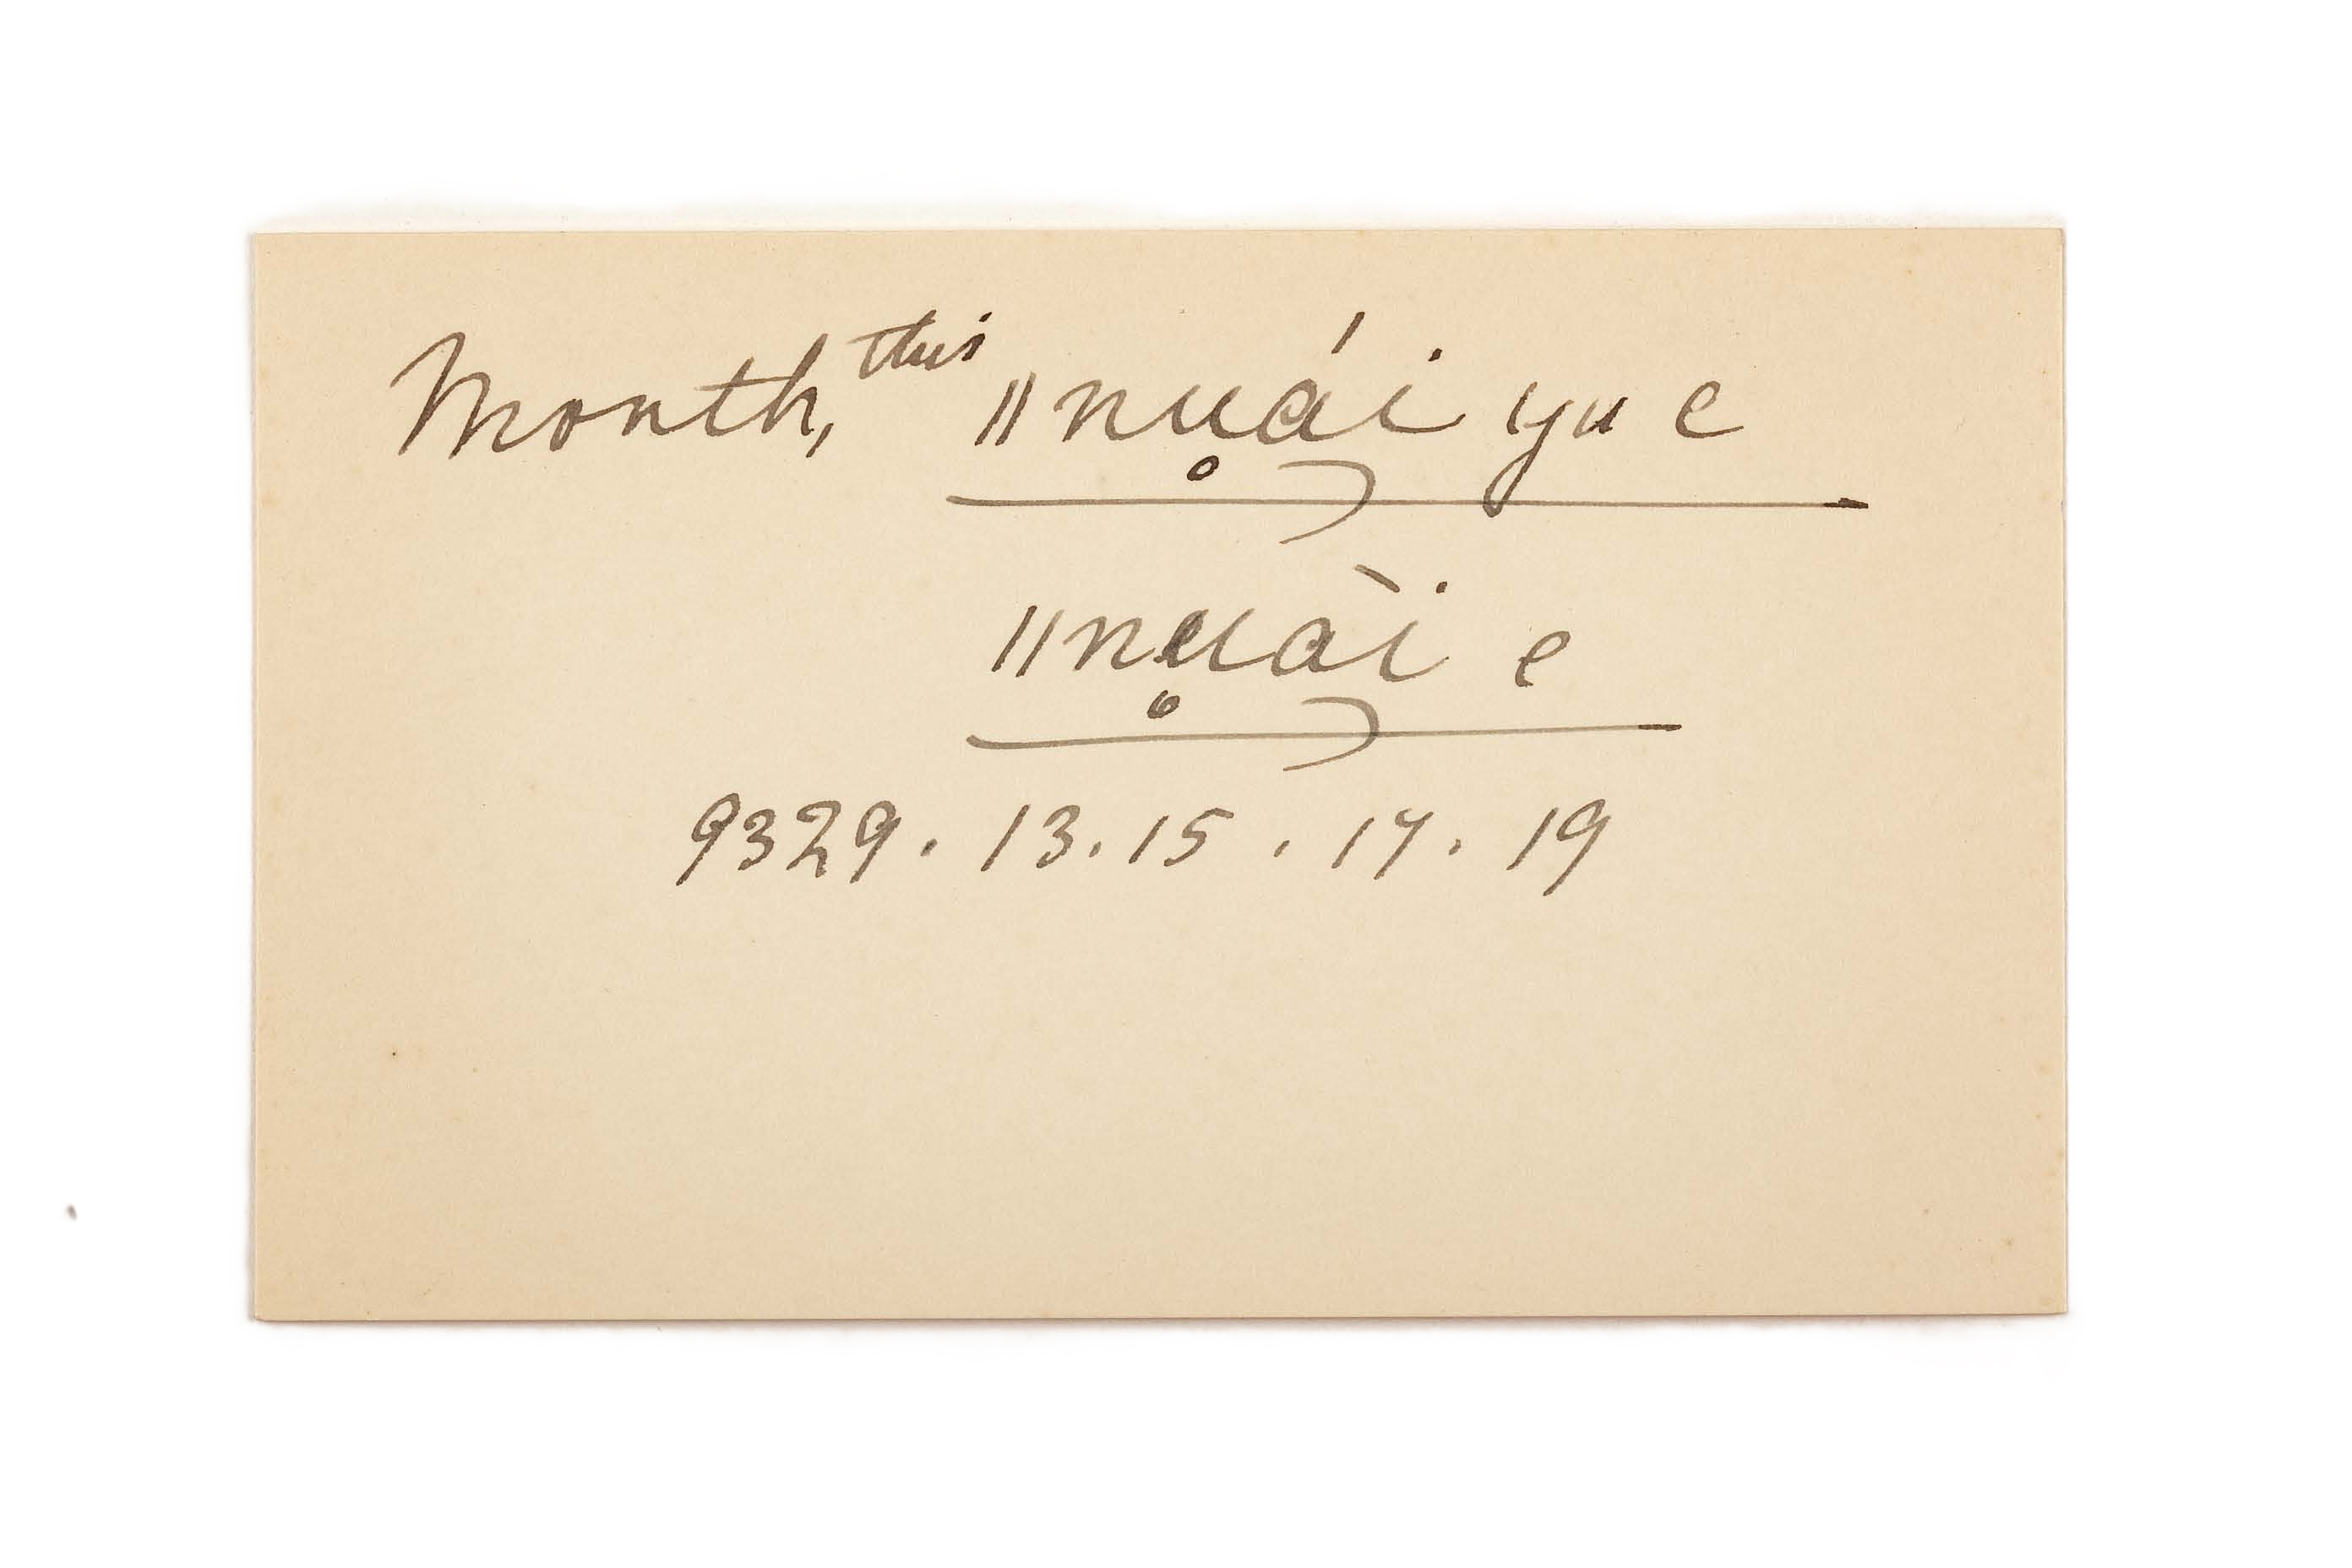 Month, this ǁnu̥ái yu e
ǁnu̥ài e
9329. 13. 15. 17. 19